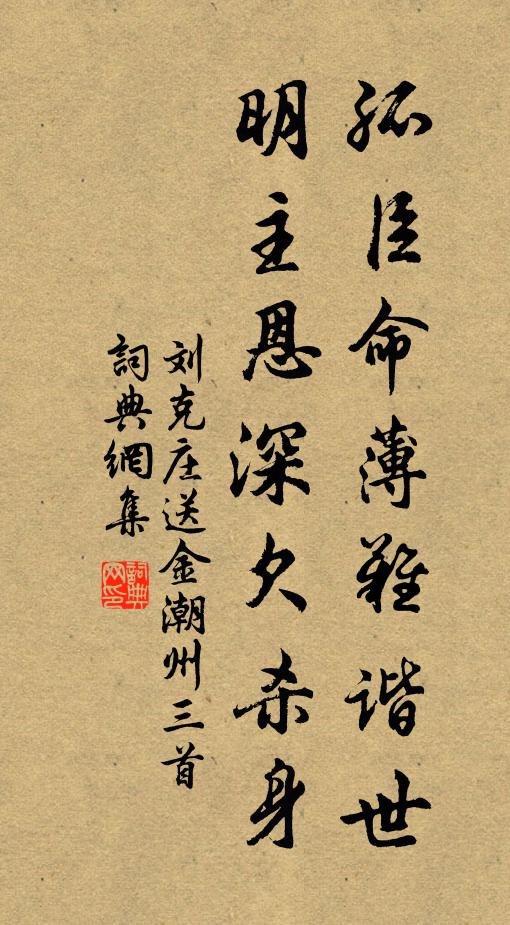 孤臣命薄难谐世
明主恩深欠杀身
刘克庄送金潮州三首
詞典網集
詞典网印